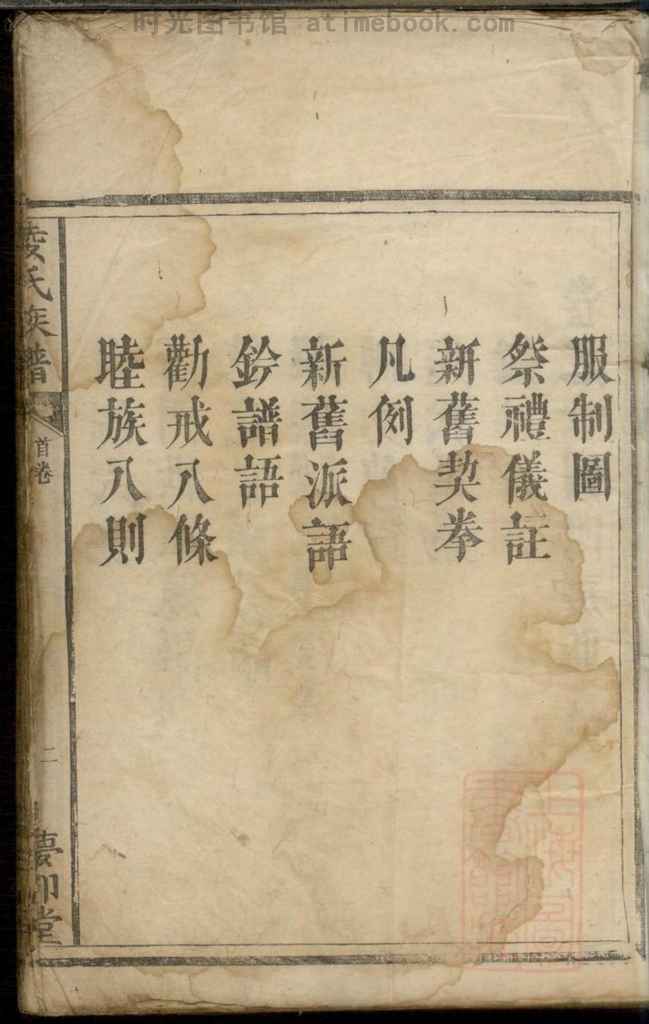 时光图书馆 atimebook.com
服制圖
祭禮儀註
新舊契拳
凡例
新舊派語
鈐譜語
勸戒八條
睦族八則
氏族譜
首卷
二
堂